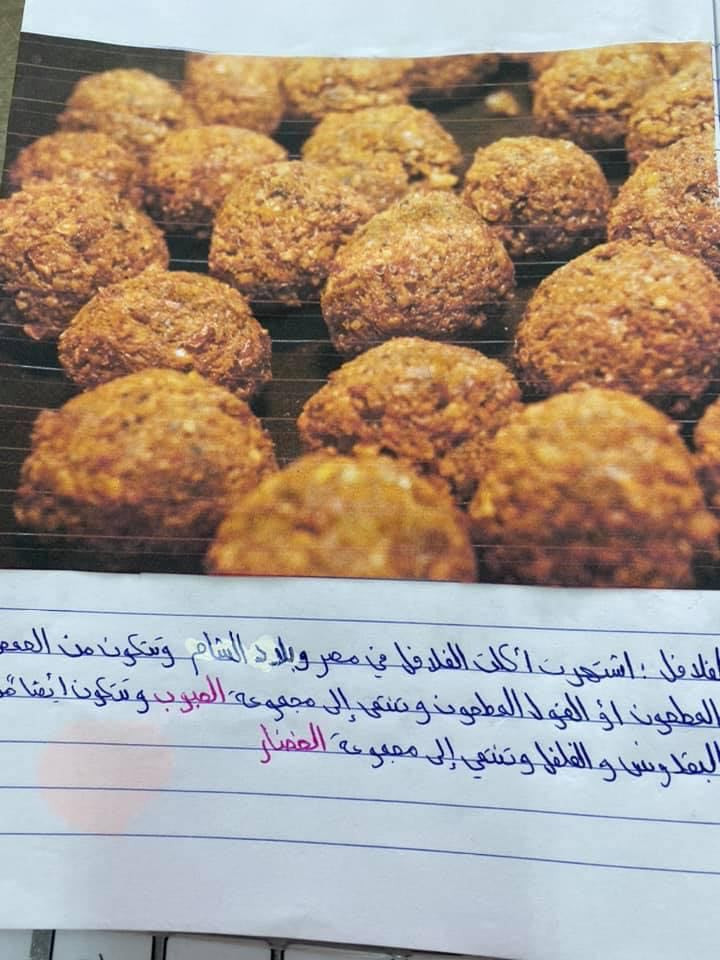 الفلافل : اشتهرت أكلت الفلافل في مصر وبلاد الشام وتتكون من الحمص
المطحون أؤ الفول المطحون وتنتمي إلى مجموعة الحبوب وتتكون ايضا
البقدونس والفلفل وتنتمي إلى مجموعة الخضار